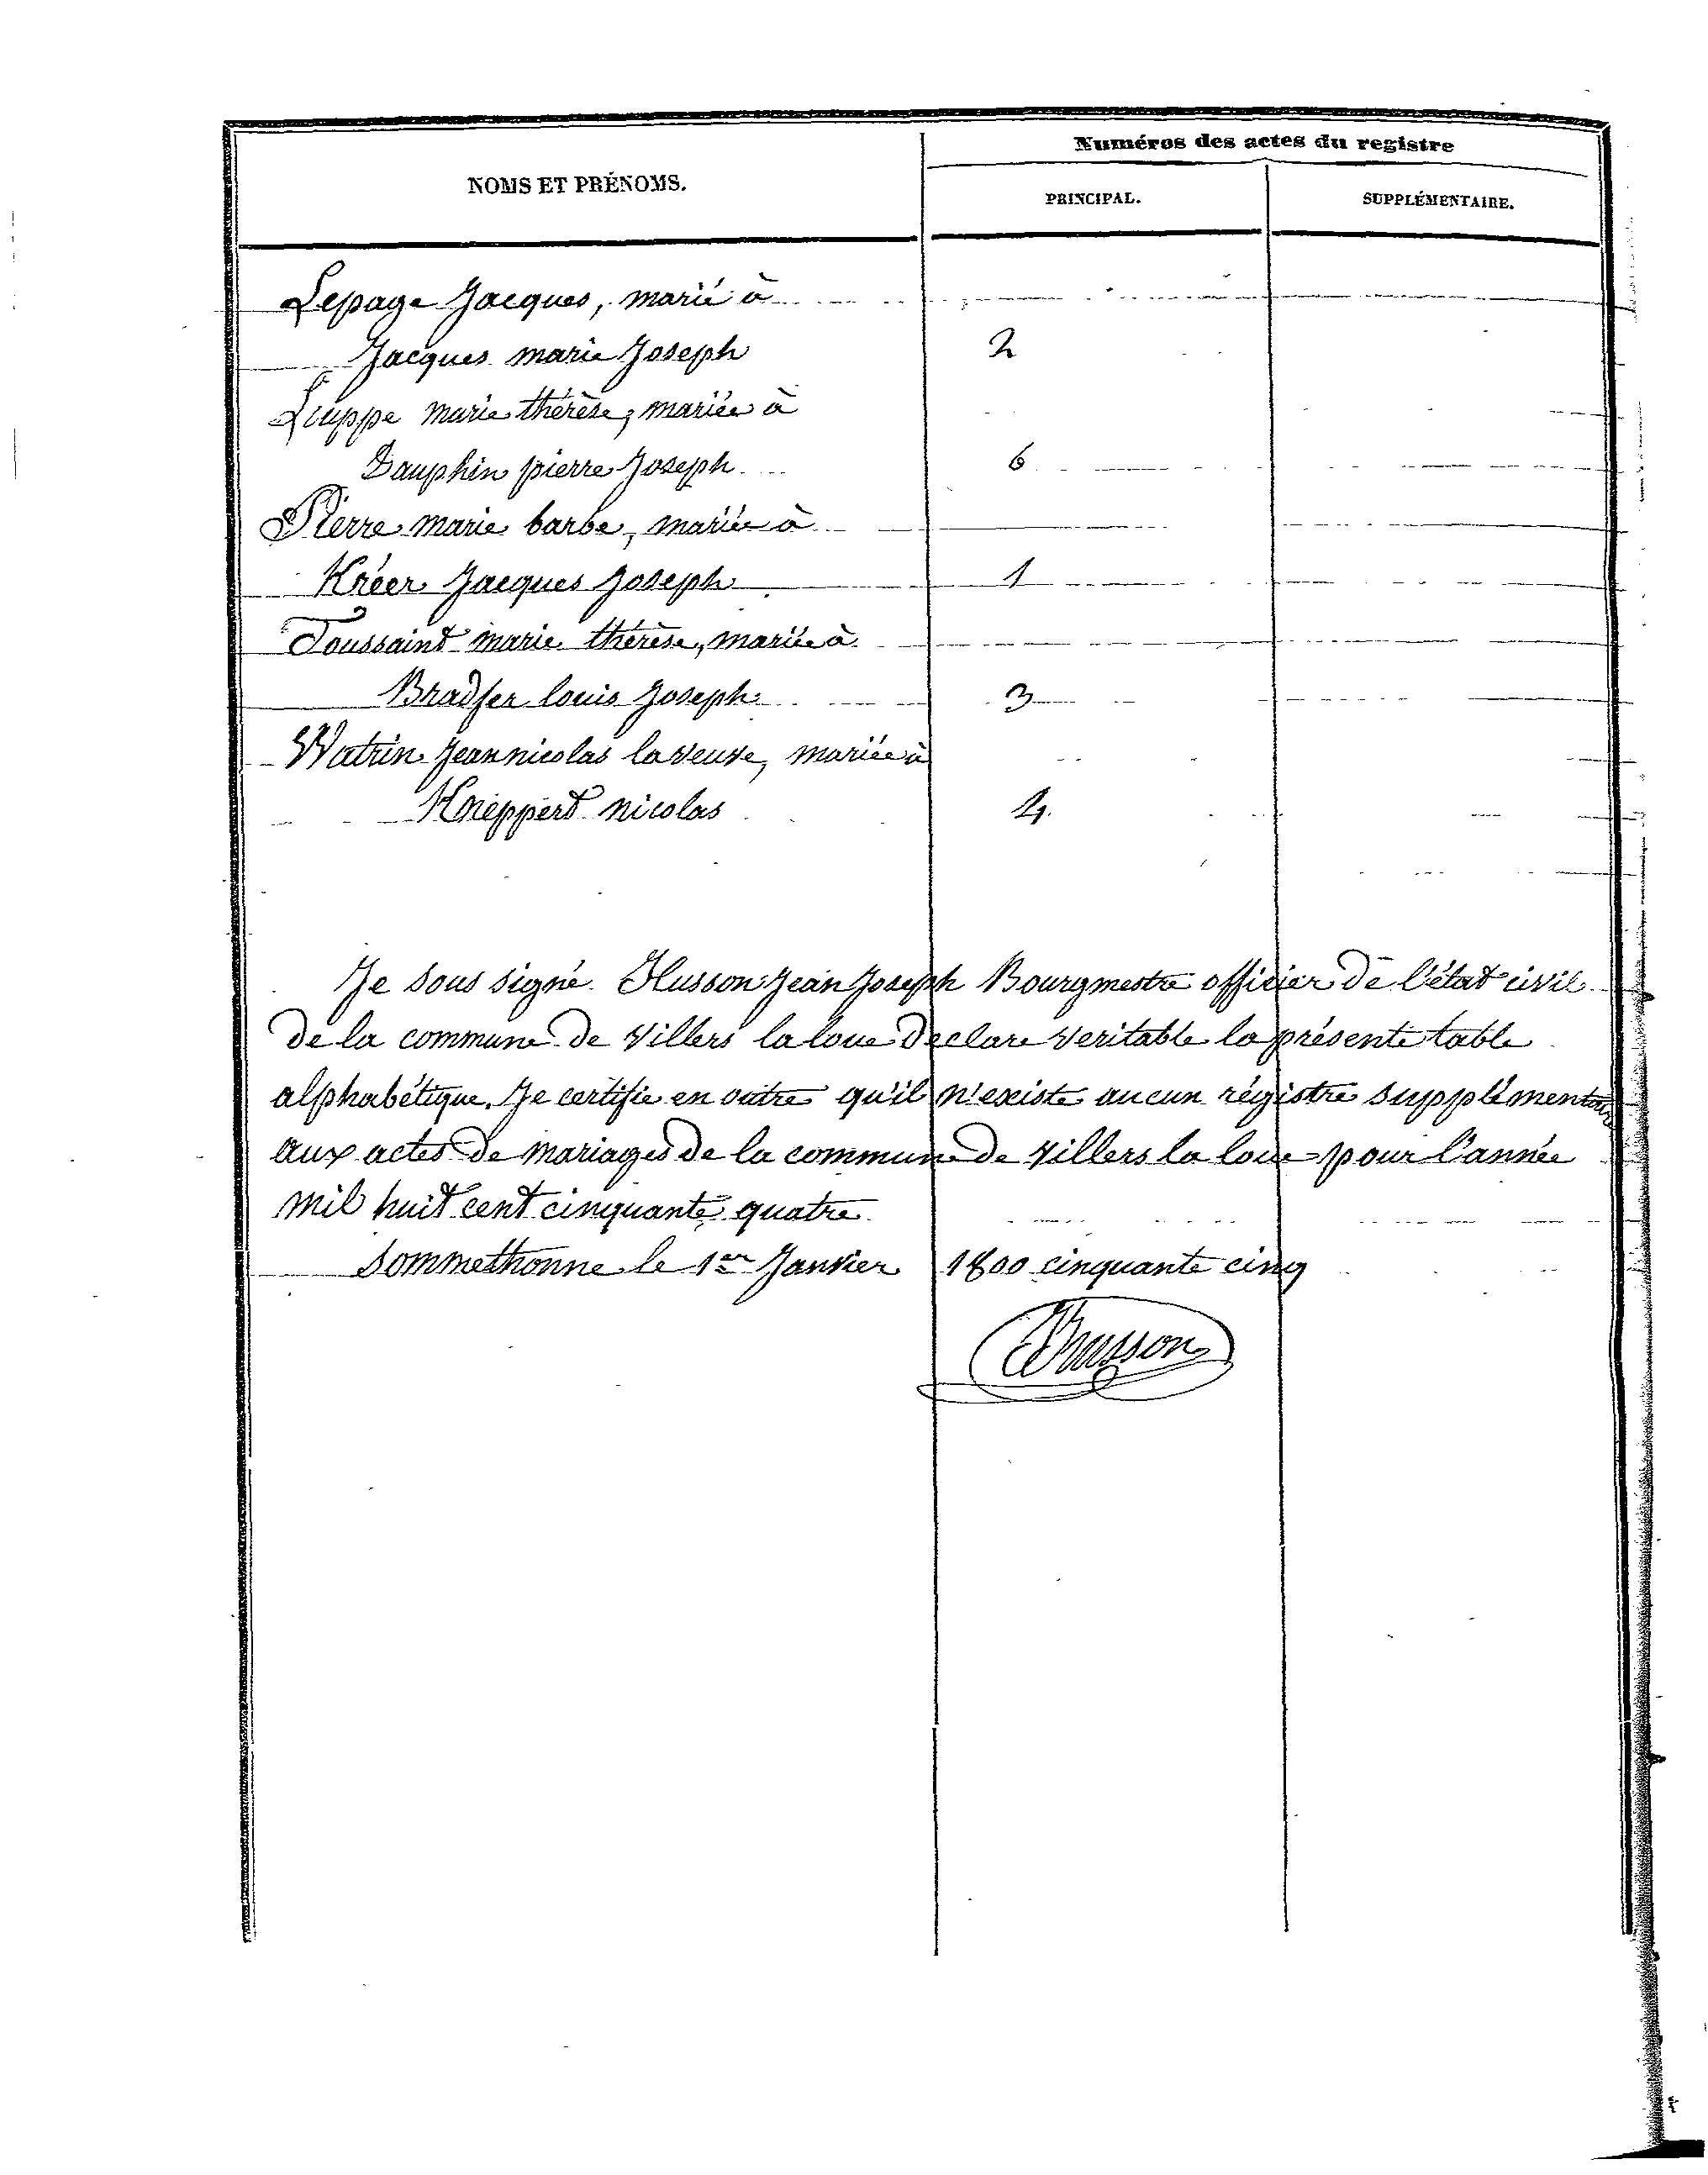 Numéros des actes du registre
NOMS ET PRÉNOMS.
PRINCIPAL. SUPPLÉMENTAIRE.
Lepage Jacques, marié à
Jacques marie Joseph 2
Luppe marie thérèse, mariée à
Dauphin pierre Joseph 6
Pierre marie barbe, mariée à
Kréer Jacques Joseph 1
Toussaint marie thérèse, mariée à
Bradfer louis Joseph 3
Watrin Jean nicolas la veuve, mariée à
Knepper nicolas 4
Je sous signé Husson Jean Joseph Bourgmestre officier de l'état civil
de la commune de Villers la loue declare veritable la présente table
alphabétique. Je certifie en outre qu'il n'existe aucun régistre supplémentaire
aux actes de mariages de la commune de Villers la loue pour l'année
mil huit cent cinquante quatre
Sommethonne le 1er Janvier 1800 cinquante cinq
Husson